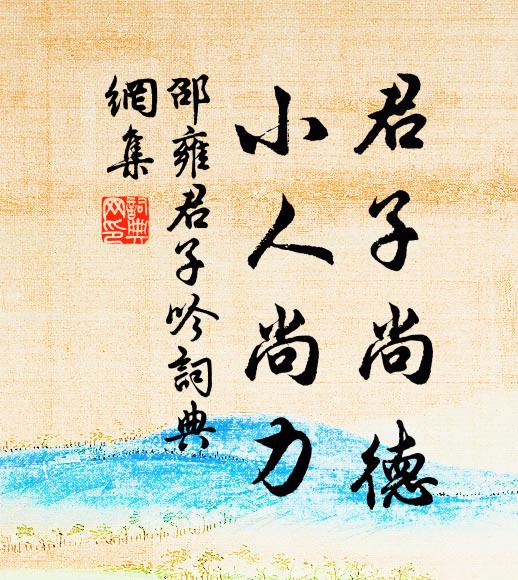 君子尚德
小人尚力
邵雍君子吟詞典
網集
詞典
网印